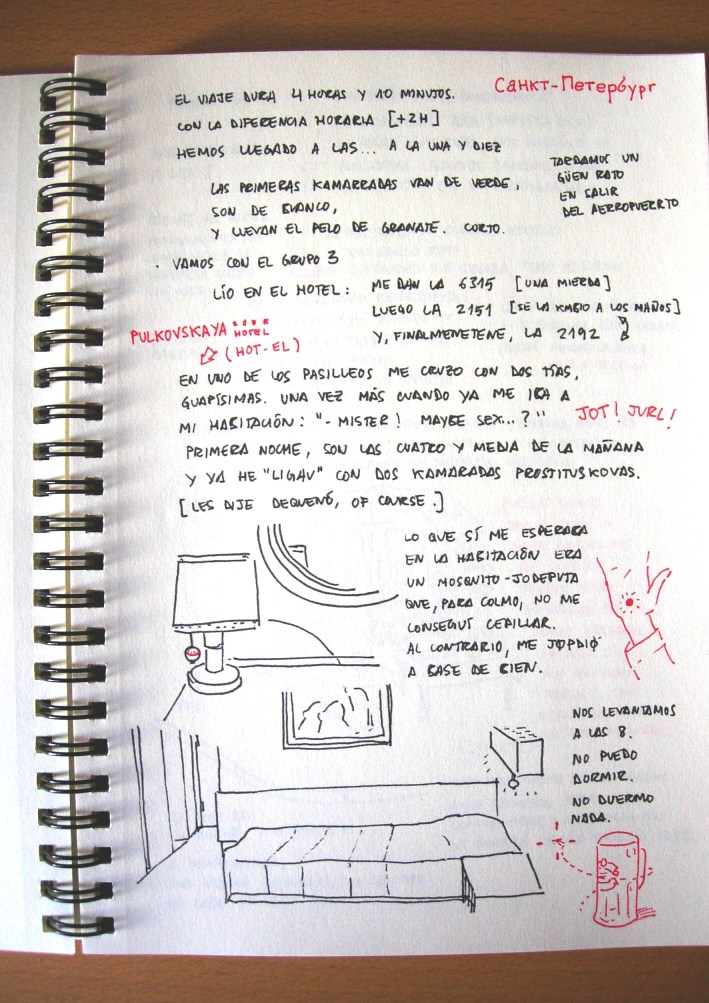 Санкт-Петербург
EL VIAJE DURA 4 HORAS Y 10 MINUTOS.
CON LA DIFERENCIA HORARIA [+2H]
HEMOS LLEGADO A LAS... A LA UNA Y DIEZ
TARDAMOS UN
GÜEN RATO
EN SALIR
DEL AERROPUERRTO
LAS PRIMERAS KAMARRADAS VAN DE VERDE,
SON DE BLANCO,
Y LLEVAN EL PELO DE GRANATE. CORTO.
· VAMOS CON EL GRUPO 3
LÍO EN EL HOTEL: ME DAN LA 6315 [UNA MIERDA]
LUEGO LA 2151 [SE LA KMBIO A LOS MAÑOS]
Y, FINALMENETENE, LA 2192
PULKOVSKAYA HOTEL
(HOT-EL)
EN UNO DE LOS PASILLEOS ME CRUZO CON DOS TÍAS,
GUAPÍSIMAS. UNA VEZ MÁS CUANDO YA ME IBA A
MI HABITACIÓN: "- MISTER! MAYBE SEX...?"
JOT! JURL!
PRIMERA NOCHE, SON LAS CUATRO Y MEDIA DE LA MAÑANA
Y YA HE "LIGAU" CON DOS KAMARADAS PROSTITUSKOVAS.
[LES DIJE DEQUENÓ, OF COURSE.]
LO QUE SÍ ME ESPERABA
EN LA HABITACIÓN ERA
UN MOSQUITO-JODEPUTA
QUE, PARA COLMO, NO ME
CONSEGUÍ CEPILLAR.
AL CONTRARIO, ME JOPDIÓ
A BASE DE BIEN.
NOS LEVANTAMOS
A LAS 8.
NO PUEDO
DORMIR.
NO DUERMO
NADA.